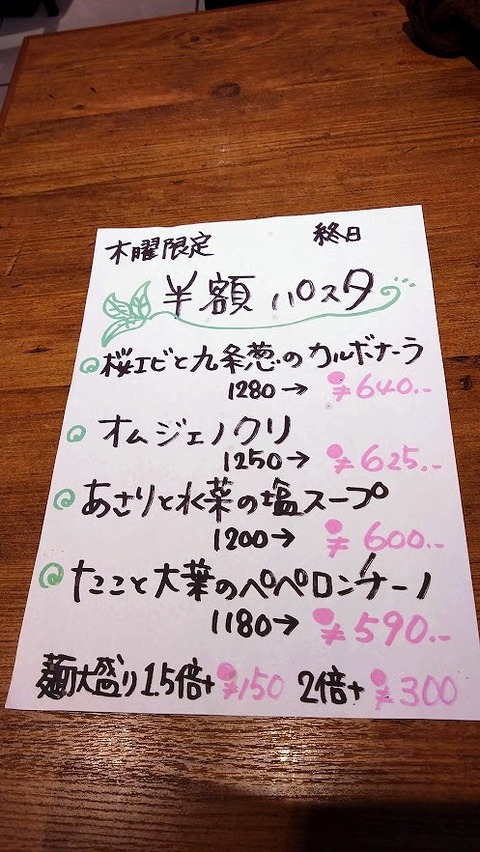 木曜限定 終日
半額 パスタ
桜エビと九条葱のカルボナーラ
1280→ ¥640.-
オムジェノクリ
1250→ ¥625.-
あさりと水菜の塩スープ
1200→ ¥600.-
たこと大葉のペペロンチーノ
1180→ ¥590.-
麺大盛り 1.5倍+ ¥150 2倍+ ¥300